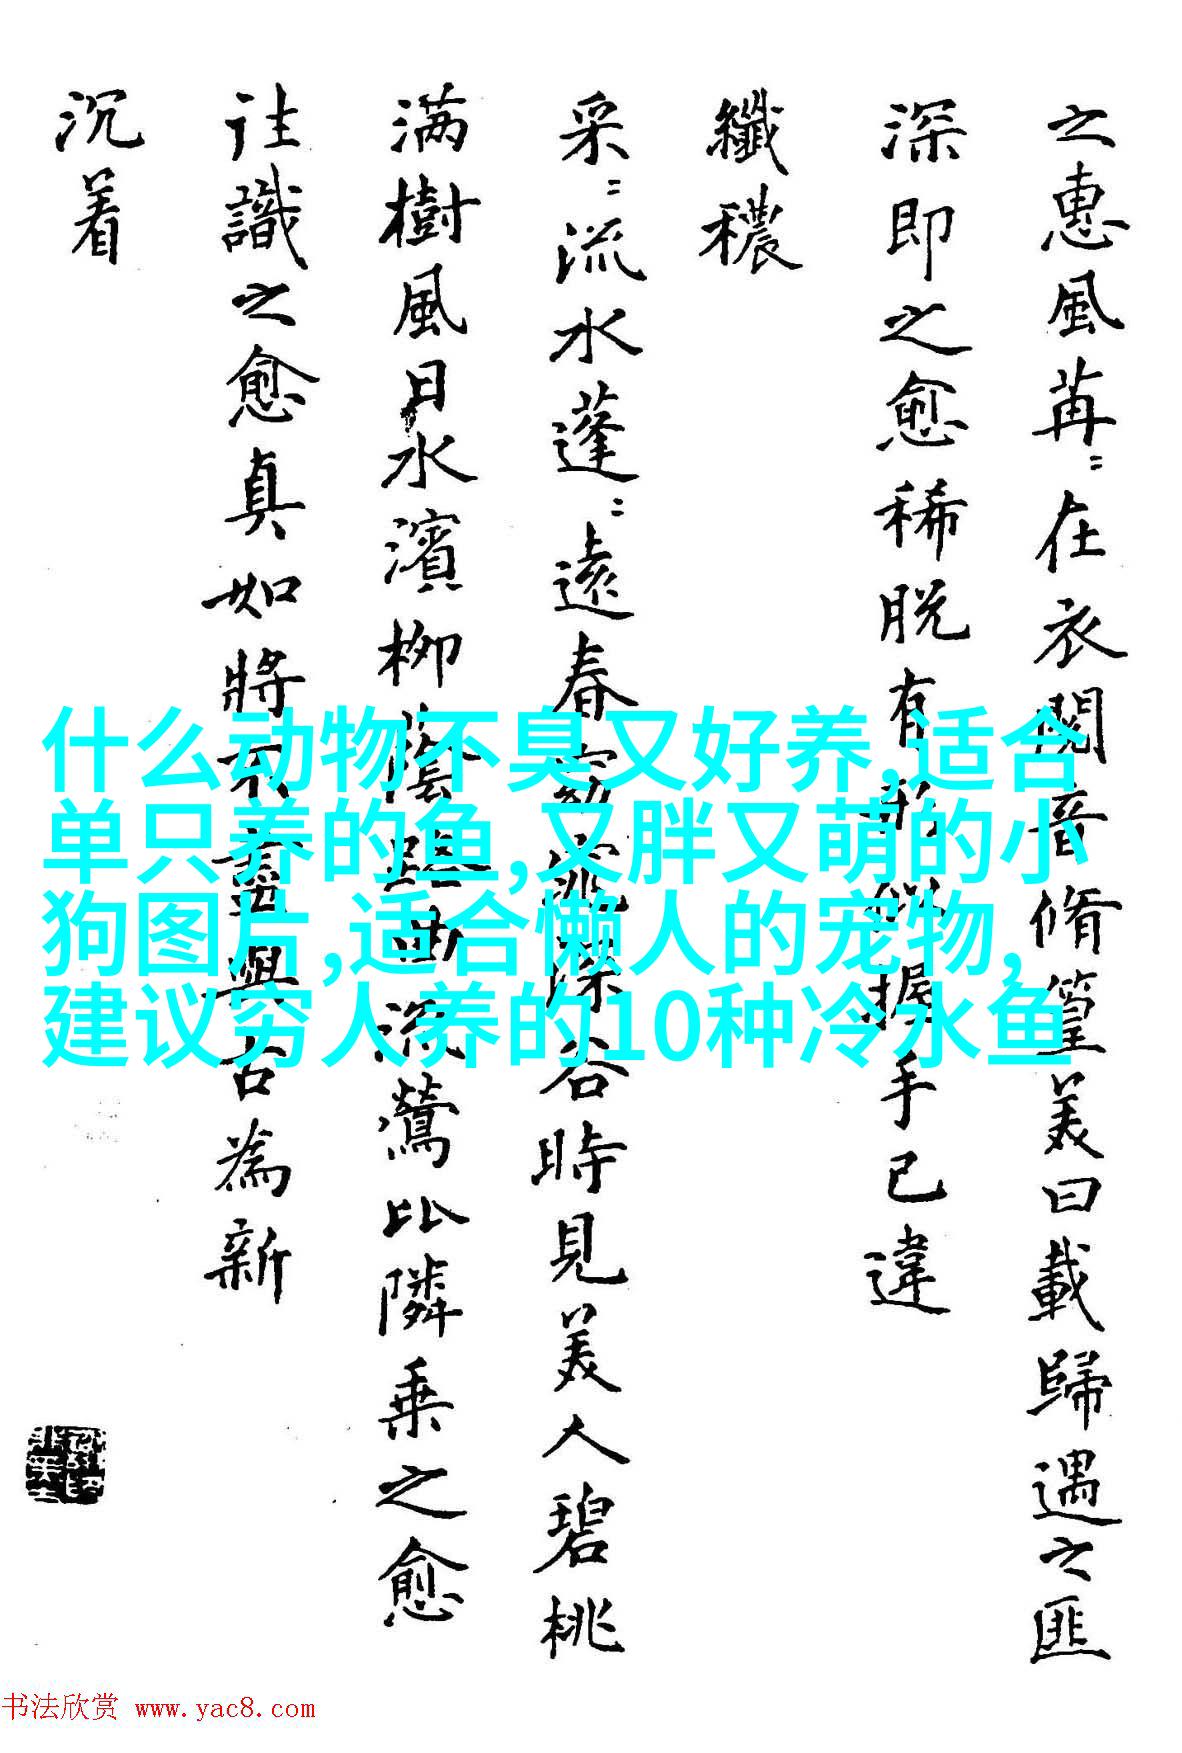 之惠風苒〻在衣閱音脩篁美曰載歸遇之匪
深即之愈稀脱有形似握手已違
纖穠
采〻流水蓬〻遠春窈窕深谷時見美人碧桃
满樹風日水濱柳陰路曲流鶯比隣乘之愈
往識之愈真如將不盡與古為新
沉着
什么动物不臭又好养,适合
单只养的鱼,又胖又萌的小
狗图片,适合懒人的宠物,
建议穷人养的10种冷水鱼
书法欣赏 www.yac8.com